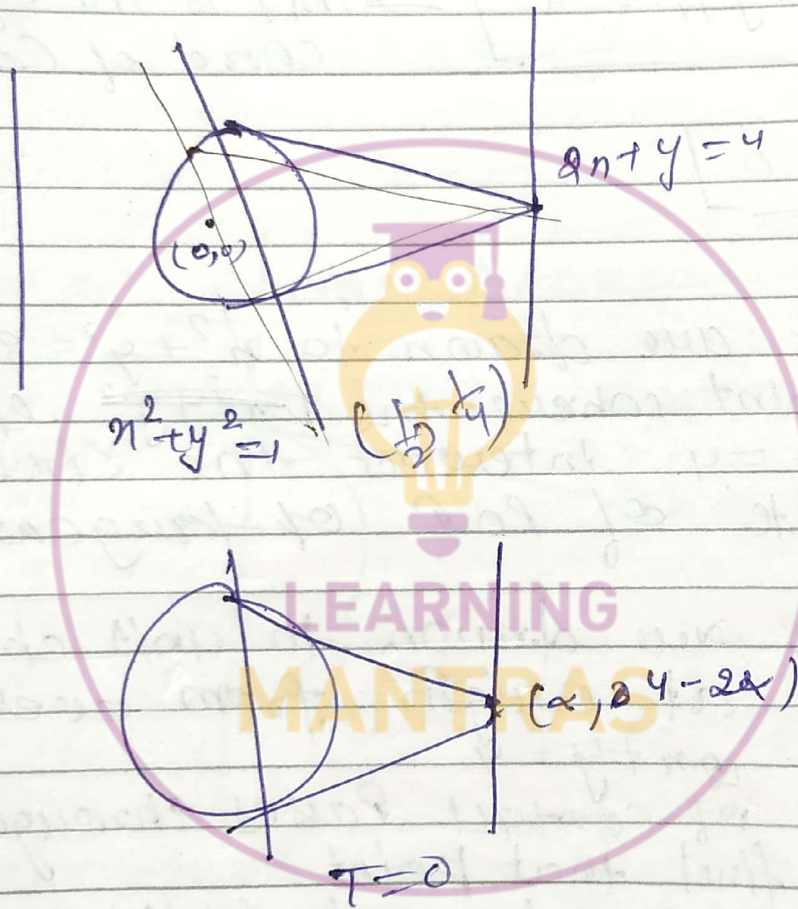 2x+y=4
(0,0)
x²+y²=1
(1/2, 1/4)
LEARNING
MANTRAS
(α, 4-2α)
T=0